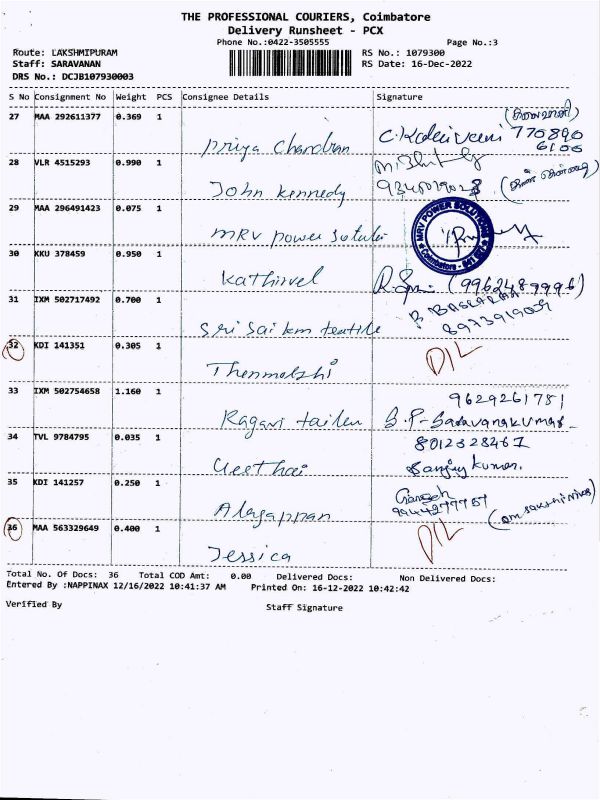 THE PROFESSIONAL COURIERS, Coimbatore
Delivery Runsheet - PCX
Phone No.:0422-3505555 Page No.:3
Route: LAKSHMIPURAM RS No.: 1079300
Staff: SARAVANAN RS Date: 16-Dec-2022
DRS No.: DCJB107930003
S No Consignment No Weight PCS Consignee Details Signature
27 MAA 292611377 0.369 1
Priya Chandran C.Kalaivani 770890
6106
28 VLR 4515293 0.990 1
John Kennedy
29 MAA 296491423 0.075 1
MRV power solution MRV POWER SOLUTIONS
30 KKU 378459 0.950 1
Kathirvel (9962489996)
31 IXM 502717492 0.700 1 R BASKARAN
Sri Sai km textile 8973919009
32 KDI 141351 0.305 1 D/L
Thenmolzhi
33 IXM 502754658 1.160 1 9629261781
Ragavi tailer S.P-Saravanakumar-
34 TVL 9784795 0.035 1 8012328467
Geethai Sanjay kumar.
35 KDI 141257 0.250 1 Ganesh
Alagappan 9944277757
36 MAA 563329649 0.400 1 D/L
Jessica
Total No. Of Docs: 36 Total COD Amt: 0.00 Delivered Docs: Non Delivered Docs:
Entered By :NAPPINAX 12/16/2022 10:41:37 AM Printed On: 16-12-2022 10:42:42
Verified By Staff Signature